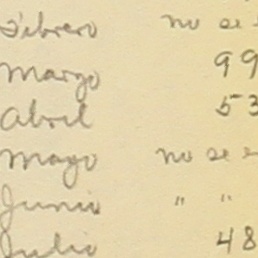 Febrero no se
Marzo 99
Abril 53
Mayo no se e
Junio " "
Julio 48